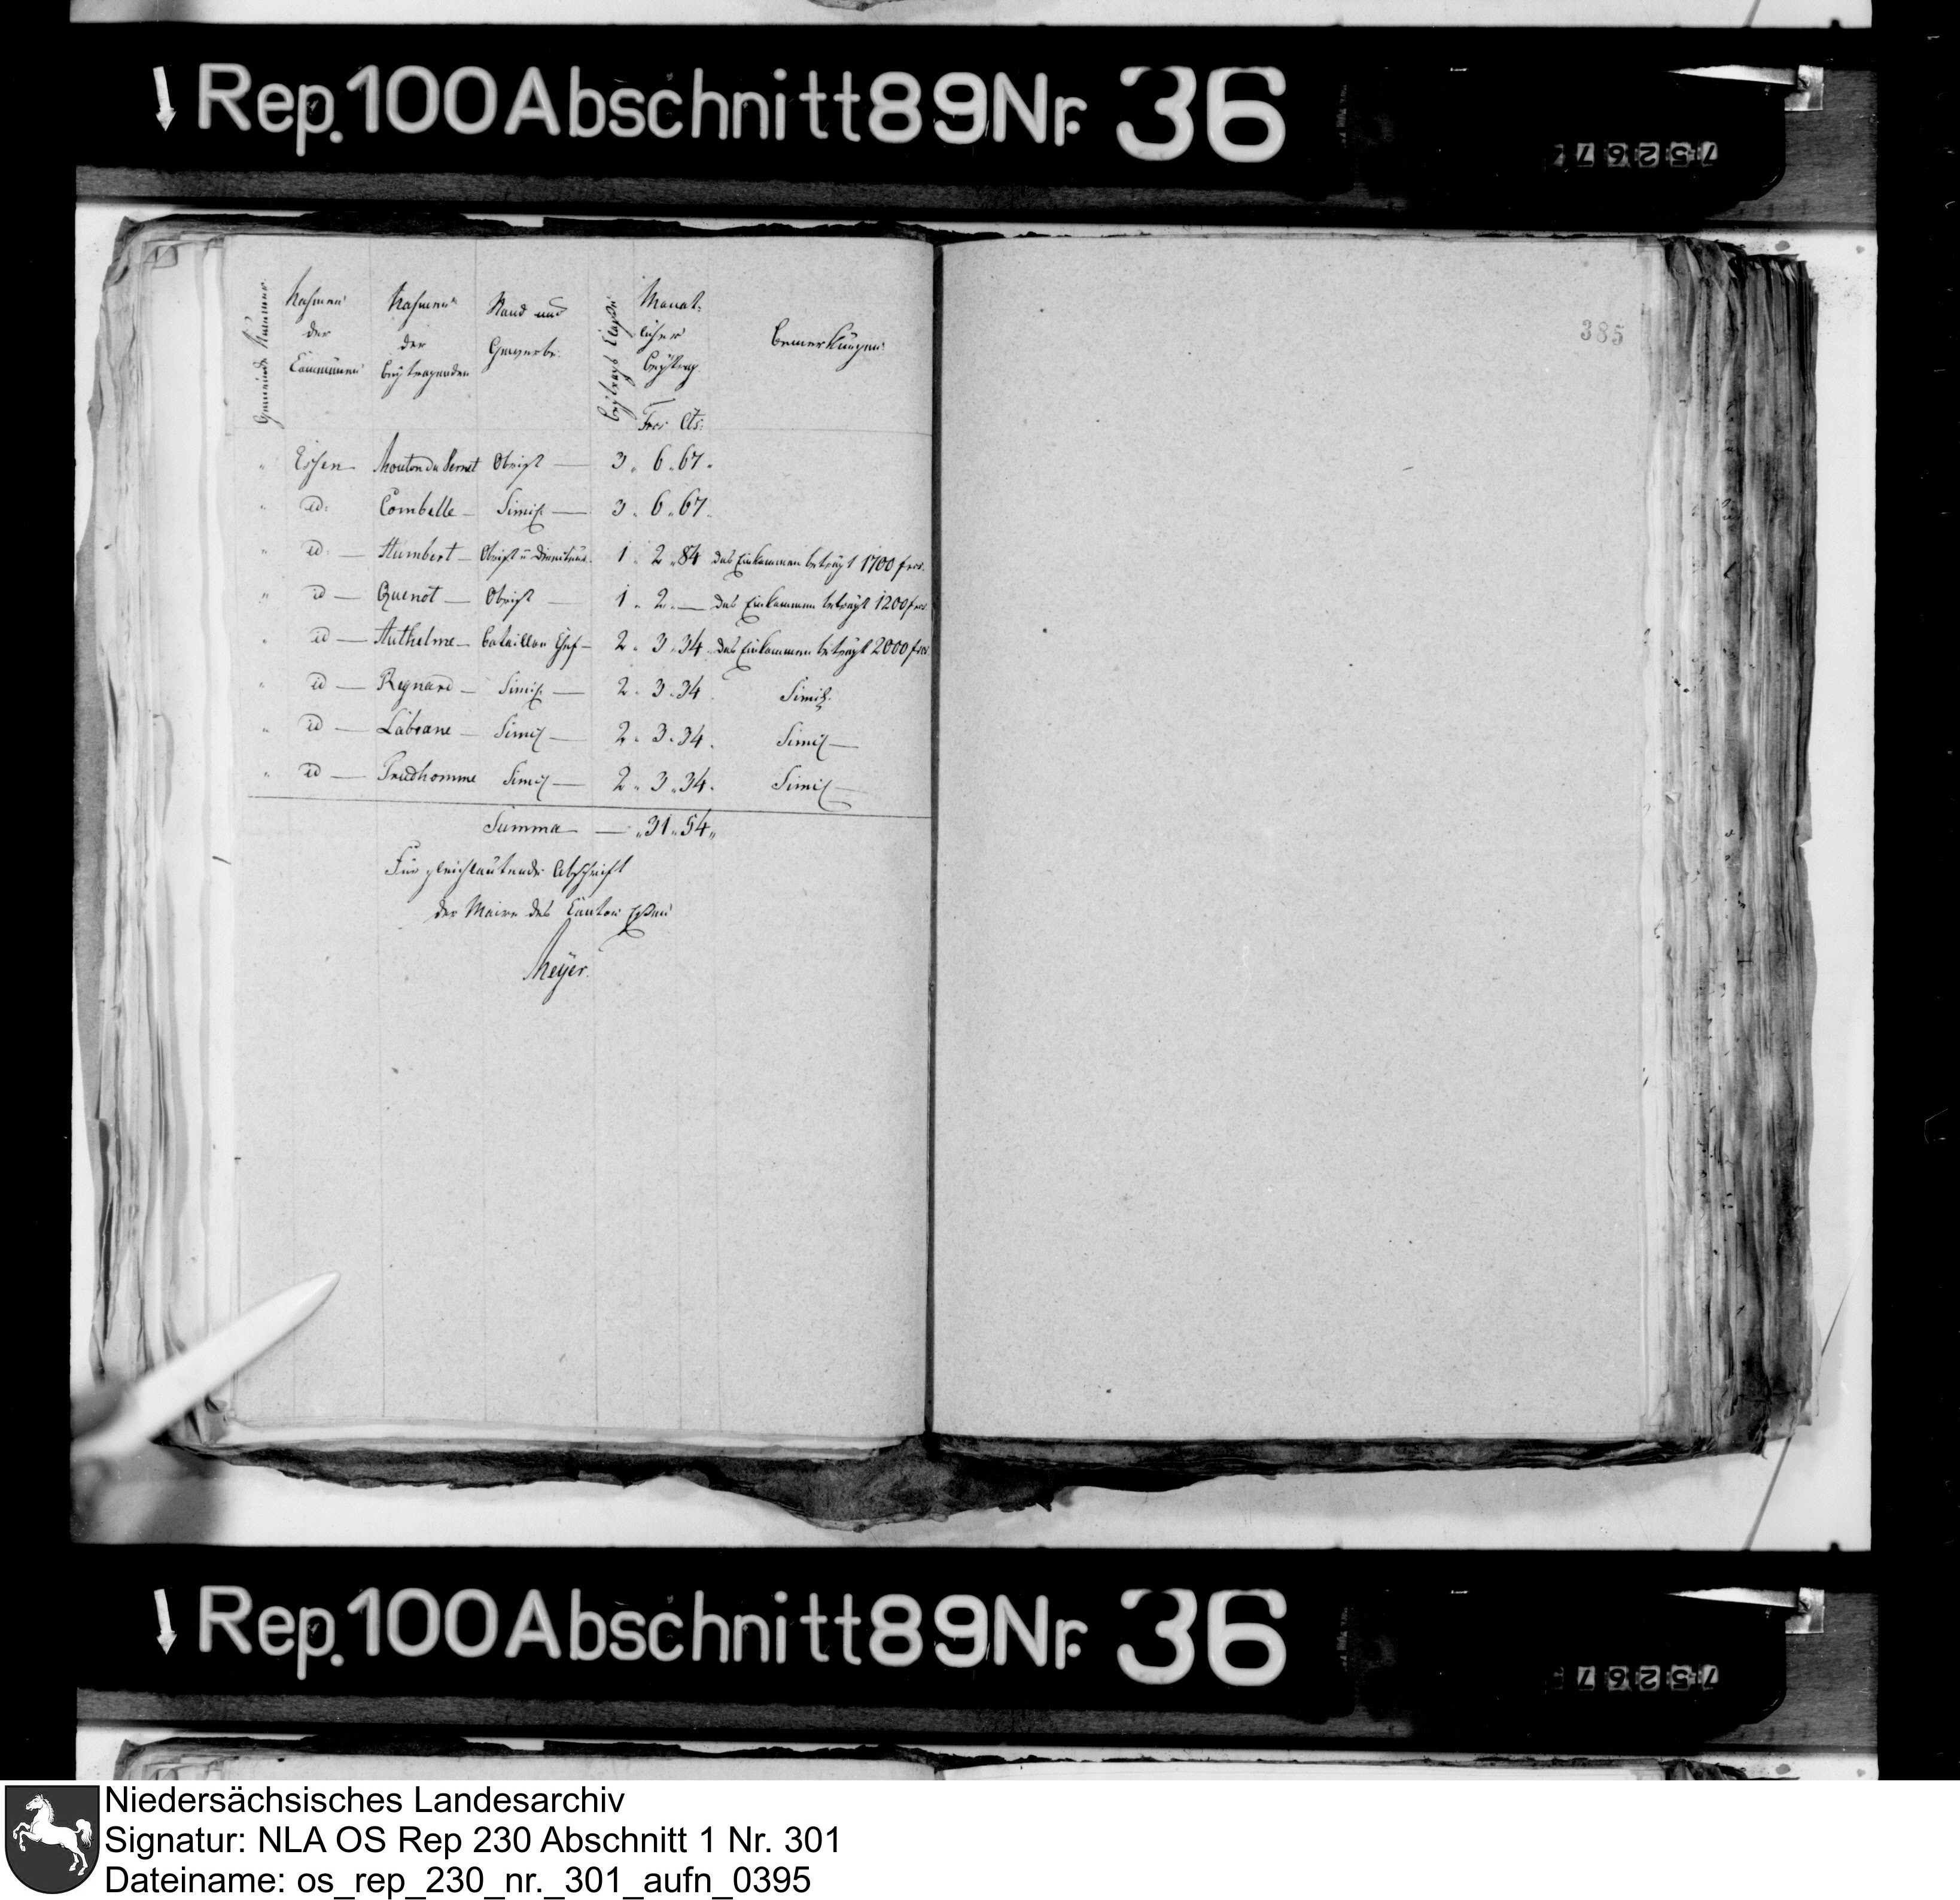 Rep. 100 Abschnitt 89 Nr. 36
75267
385
Gemeinde Nummer
Nahmen der Communen
Nahmen der beÿtragenden
Stand und Gewerbe.
beÿtrags Claße
Monat-licher beÿtrag. Frcs Cts.
bemerkungen
" Essen Mouton du Vernet Obrist — 3. 6. 67.
" id. Combelle — Simil — 3. 6. 67.
" id. — Humbert — Obrist u 1. 2. 84 das Einkommen beträgt 1700 frcs.
" id — Quenot — Obrist — 1. 2. — das Einkommen beträgt 1200 frcs
" id — Anthelme — bataillon Chef — 2. 3. 34. das Einkommen beträgt 2000 frcs
" id — Regnard — Simil. — 2. 3. 34. Simil.
" id — Labrane — Simil — 2. 3. 34. Simil —
" id — Prudhomme Simil — 2. 3. 34. Simil —
Summa — „31. 54„
Für gleichlautende Abschrift
der Maire des Canton Eßen
Meÿer.
Rep. 100 Abschnitt 89 Nr. 36
75267
Niedersächsisches Landesarchiv
Signatur: NLA OS Rep 230 Abschnitt 1 Nr. 301
Dateiname: os_rep_230_nr._301_aufn_0395